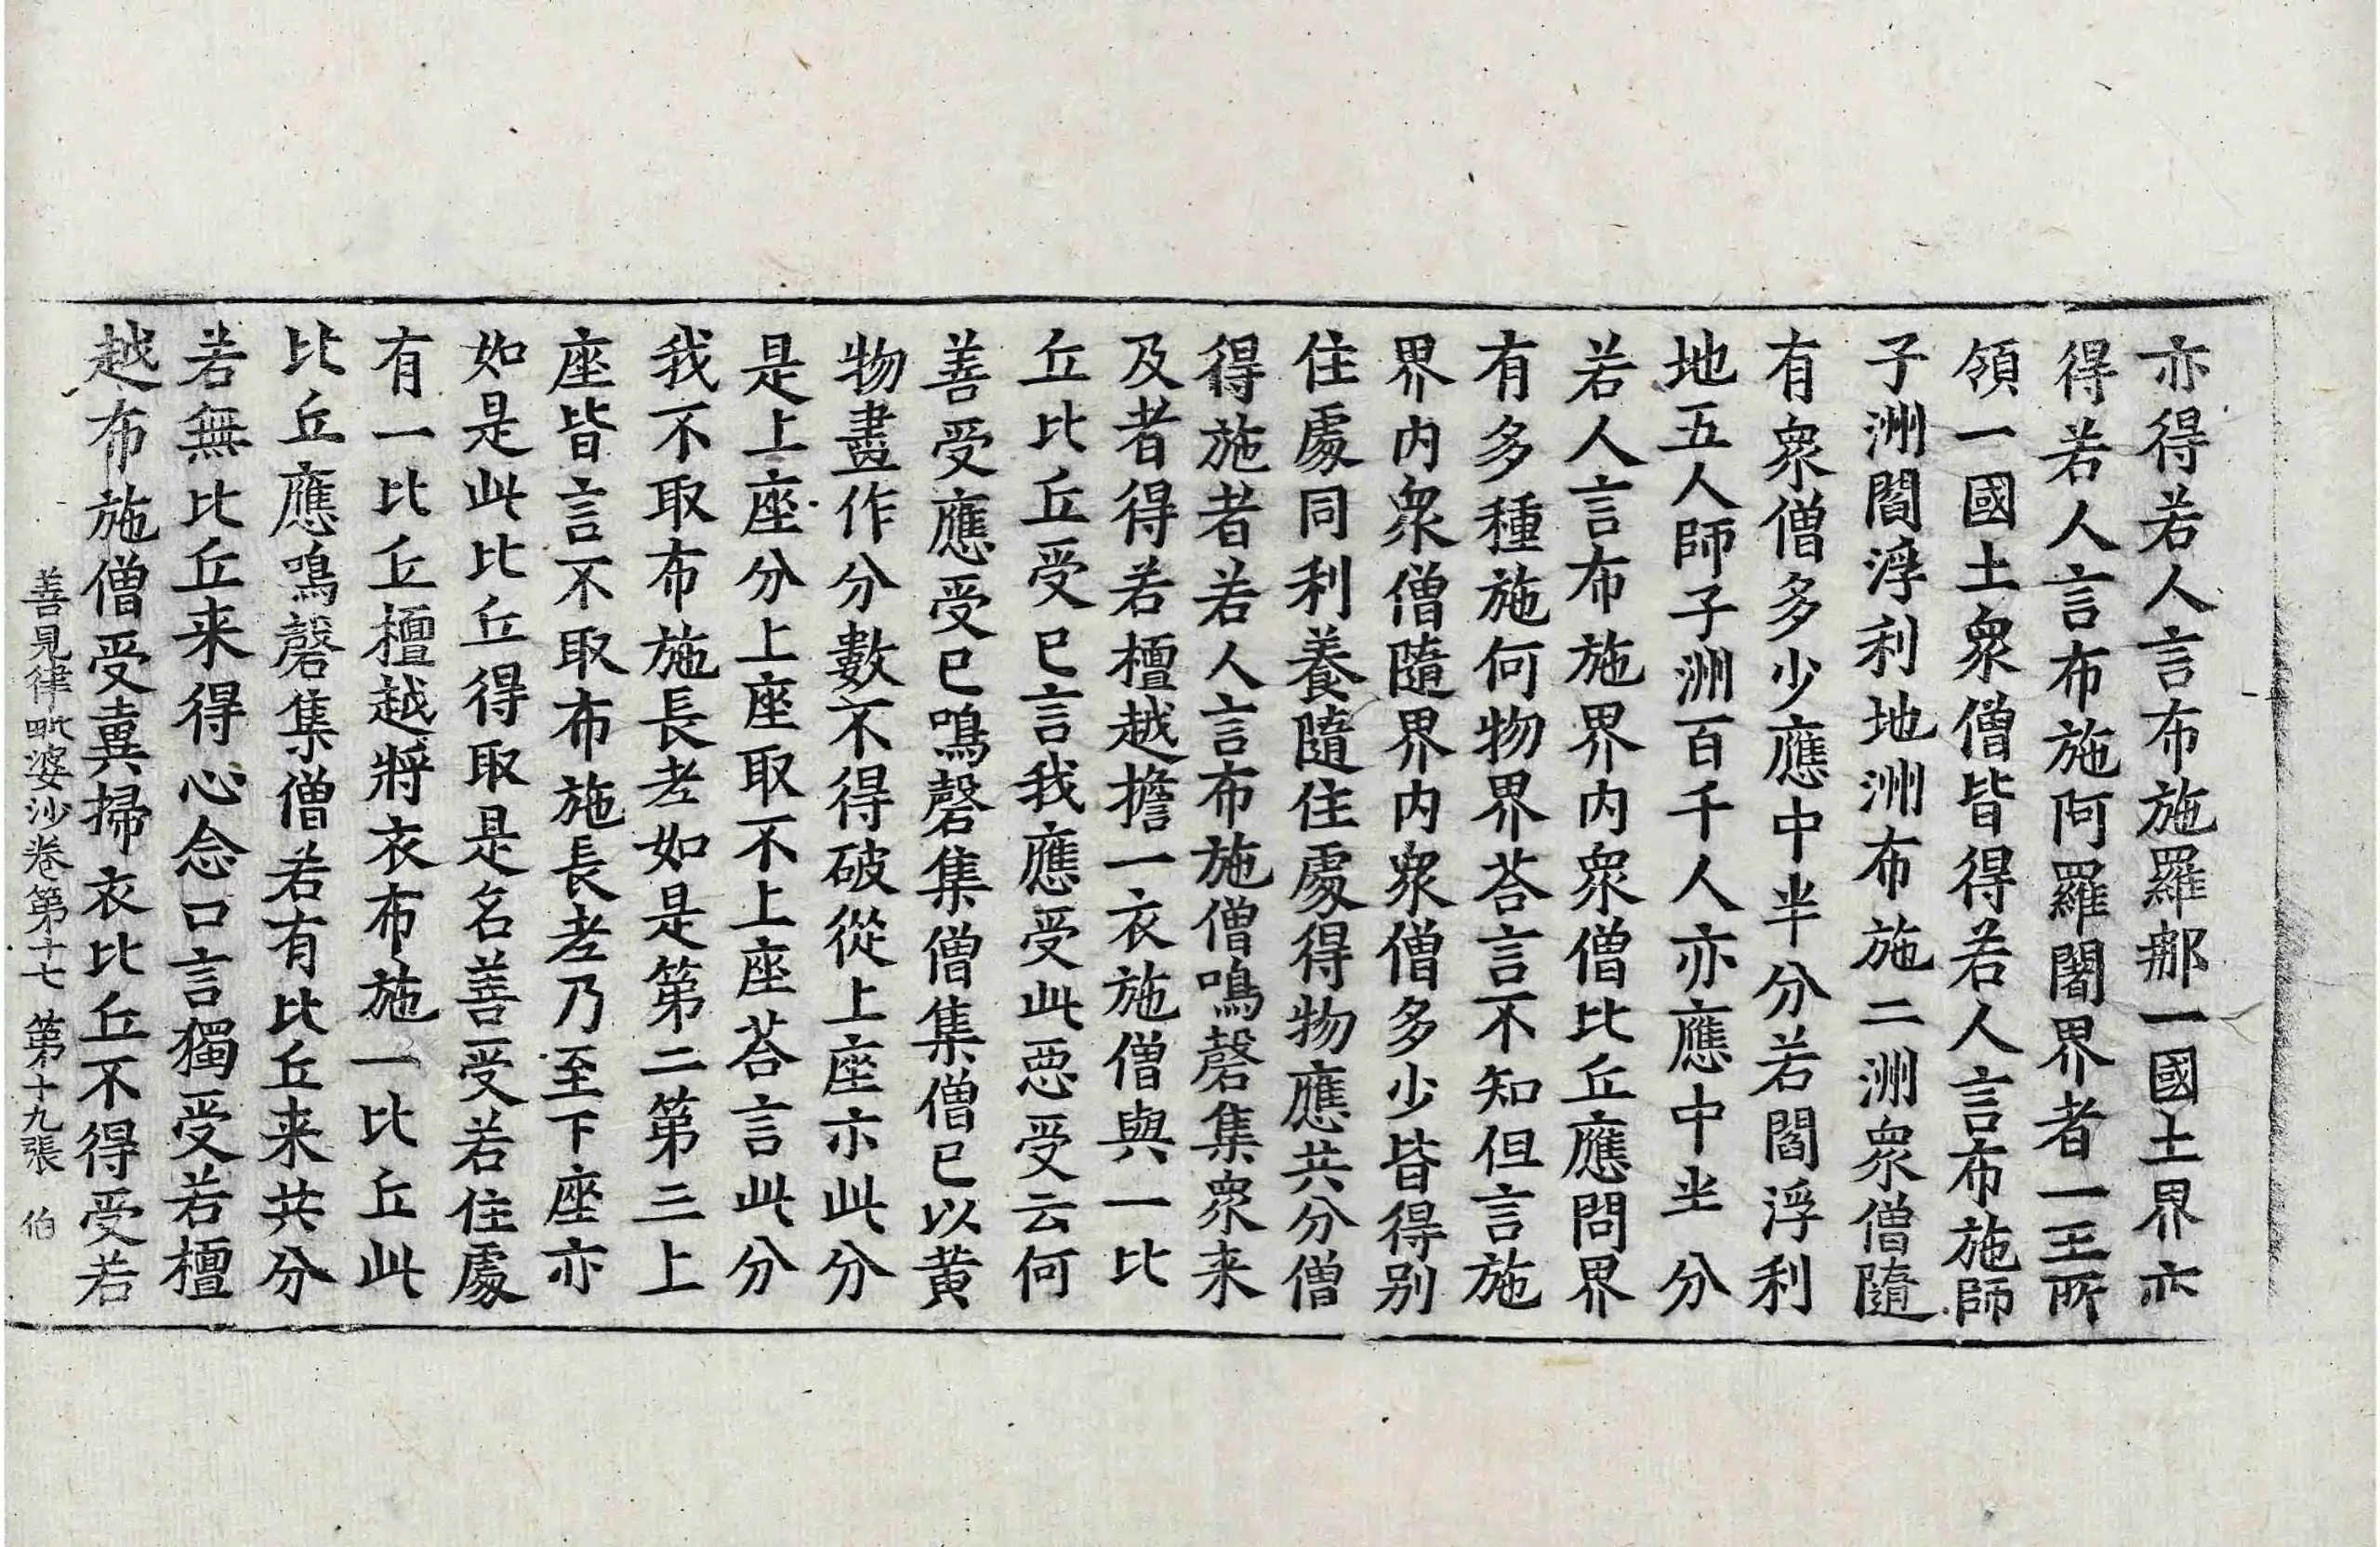 亦得若人言布施羅㖠一國土界亦
得若人言布施阿羅闍界者一王所
領一國土衆僧皆得若人言布施師
子洲閻浮利地洲布施二洲衆僧隨
有衆僧多少應中半分若閻浮利
地五人師子洲百千人亦應中半分
若人言布施界内衆僧比丘應問界
有多種施何物界荅言不知但言施
界内衆僧隨界内衆僧多少皆得别
住處同利養隨住處得物應共分僧
得施者若人言布施僧鳴磬集衆来
及者得若檀越擔一衣施僧與一比
丘比丘受已言我應受此惡受云何
善受應受已鳴磬集僧集僧已以黄
物畫作分數不得破從上座亦此分
是上座分上座取不上座荅言此分
我不取布施長老如是第二第三上
座皆言不取布施長老乃至下座亦
如是此比丘得取是名善受若住處
有一比丘檀越將衣布施一比丘此
比丘應鳴磬集僧若有比丘来共分
若無比丘来得心念口言獨受若檀
越布施僧受糞掃衣比丘不得受若
善見律毗婆沙卷第十七 第十九張 伯